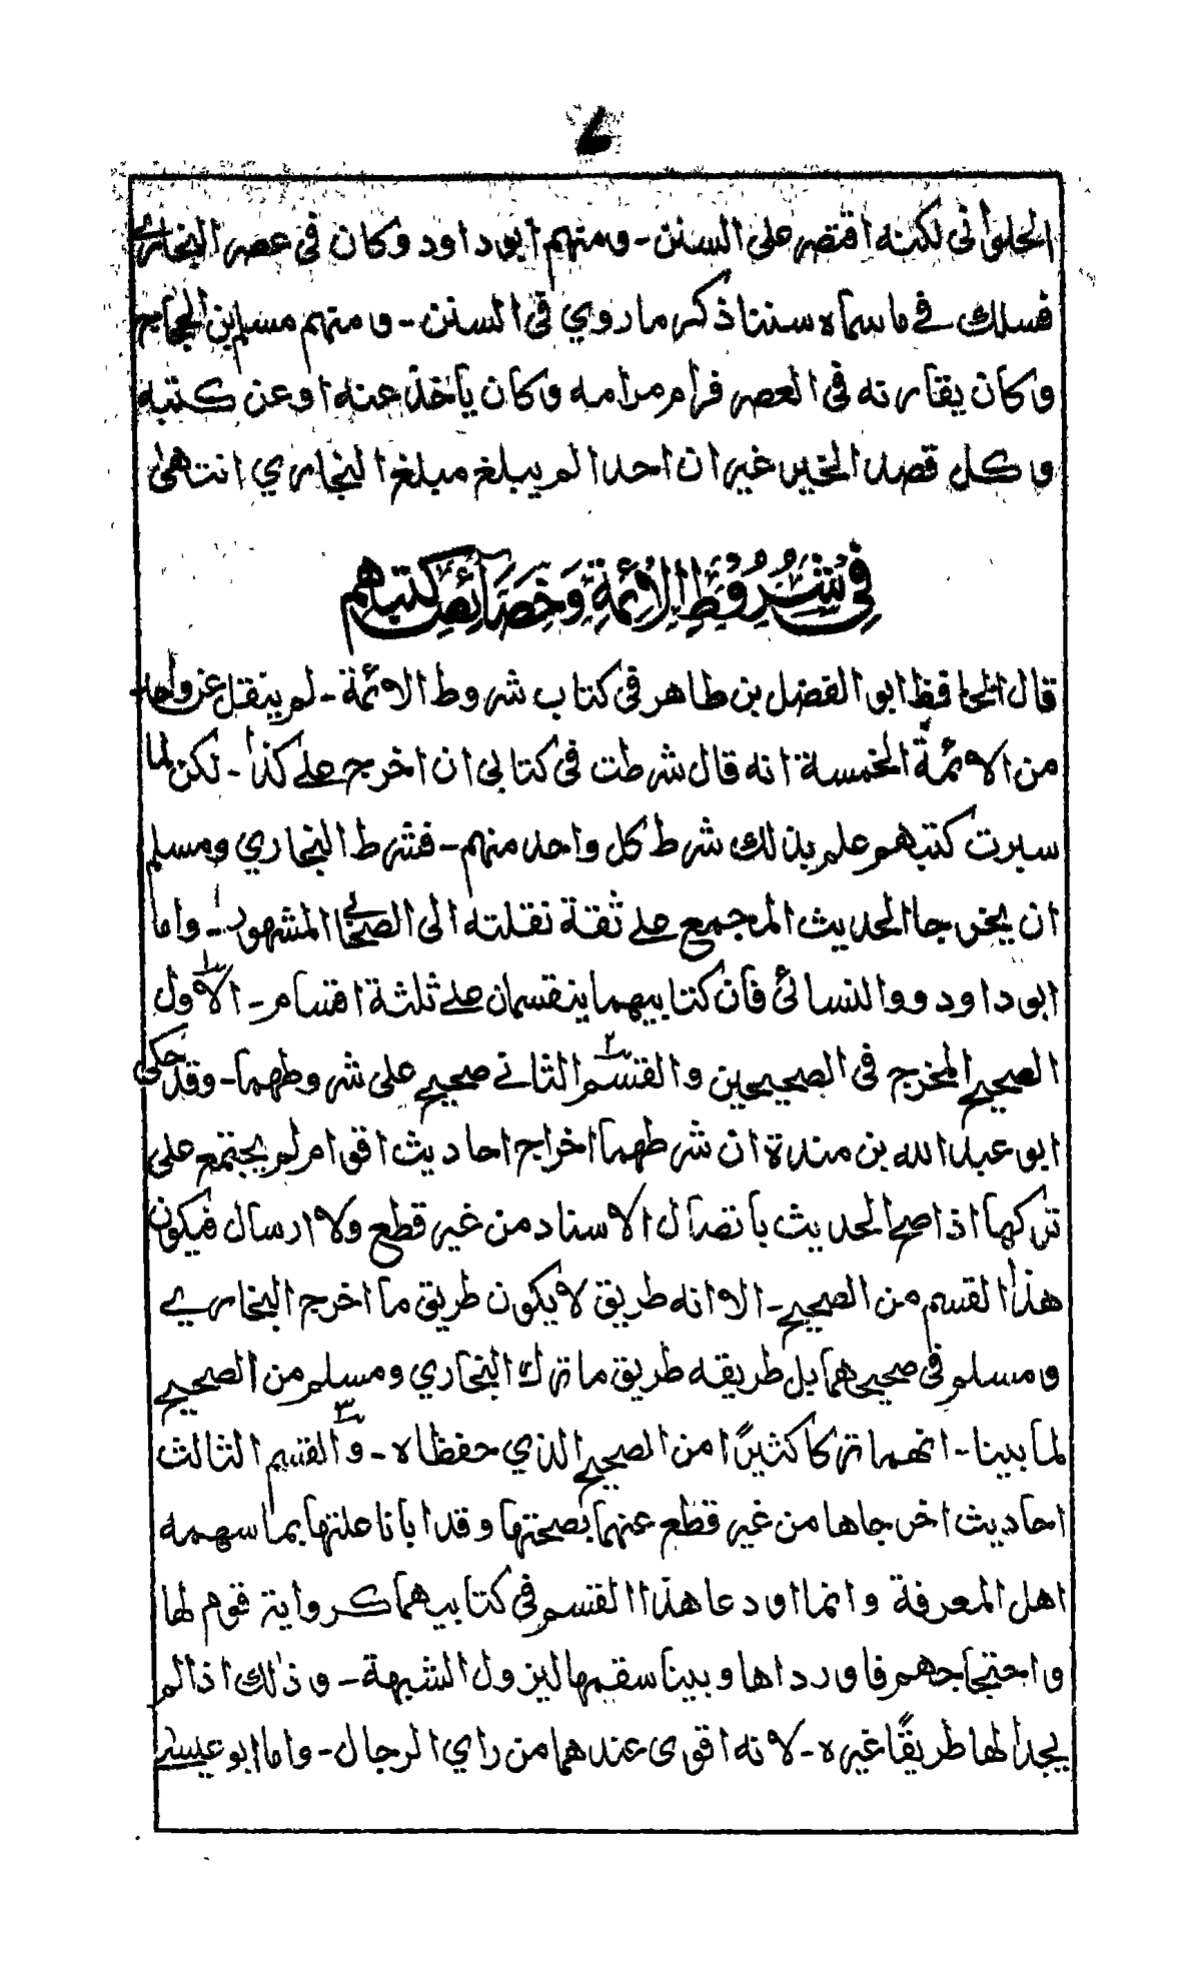 الحلوانى لكنه اقتصر على السنن - ومنهم ابو داود وكان فى عصر البخارے
فسلك فے ما سماه سننا ذكر ما روي فى السنن - ومنهم مسلم بن الحجاج
وكان يقارنه فى العصر فرام مرامه وكان ياخذ عنه او عن كتبه
وكل قصد الخير غير ان احدا لم يبلغ مبلغ البخاري انتهى
فِى شُرُوطِ الأَئِمَّةِ وَخَصَائِصِ كتبهم
قال الحافظ ابو الفضل بن طاهر فى كتاب شروط الائمة - لم ينقل عن واحد
من الائمة الخمسة انه قال شرطت فى كتابى ان اخرج على كذا - لكن لما
سبرت كتبهم علم بذلك شرط كل واحد منهم - فشرط البخاري ومسلم
ان يخرجا الحديث المجمع على ثقة نقلته الى الصحابى المشهور - واما
ابو داود والنسائى فان كتابيهما ينقسمان على ثلثة اقسام - الاول
الصحيح المخرج فى الصحيحين والقسم الثانے صحيح على شروطهما - وقد حكى
ابو عبد الله بن مندة ان شرطهما اخراج احاديث اقوام لم يجتمع على
تركها اذا صح الحديث باتصال الاسناد من غير قطع ولا ارسال فيكون
هذا القسم من الصحيح - الا انه طريق لا يكون طريق ما اخرج البخارے
ومسلم فى صحيحهما بل طريقه طريق ما ترك البخاري ومسلم من الصحيح
لما بينا - انهما تركا كثيرًا من الصحيح الذي حفظاه - والقسم الثالث ٣
احاديث اخرجاها من غير قطع عنهما بصحتها وقد ابانا علتها بما سهمه
اهل المعرفة وانما اودعا هذا القسم فى كتابيهما كرواية قوم لها
واحتجاجهم فاوردها وبينا سقمها ليزول الشبهة - وذلك اذا لم
يجدا لها طريقًا غيره - لانه اقوى عندهما من راي الرجال - واما ابو عيسى